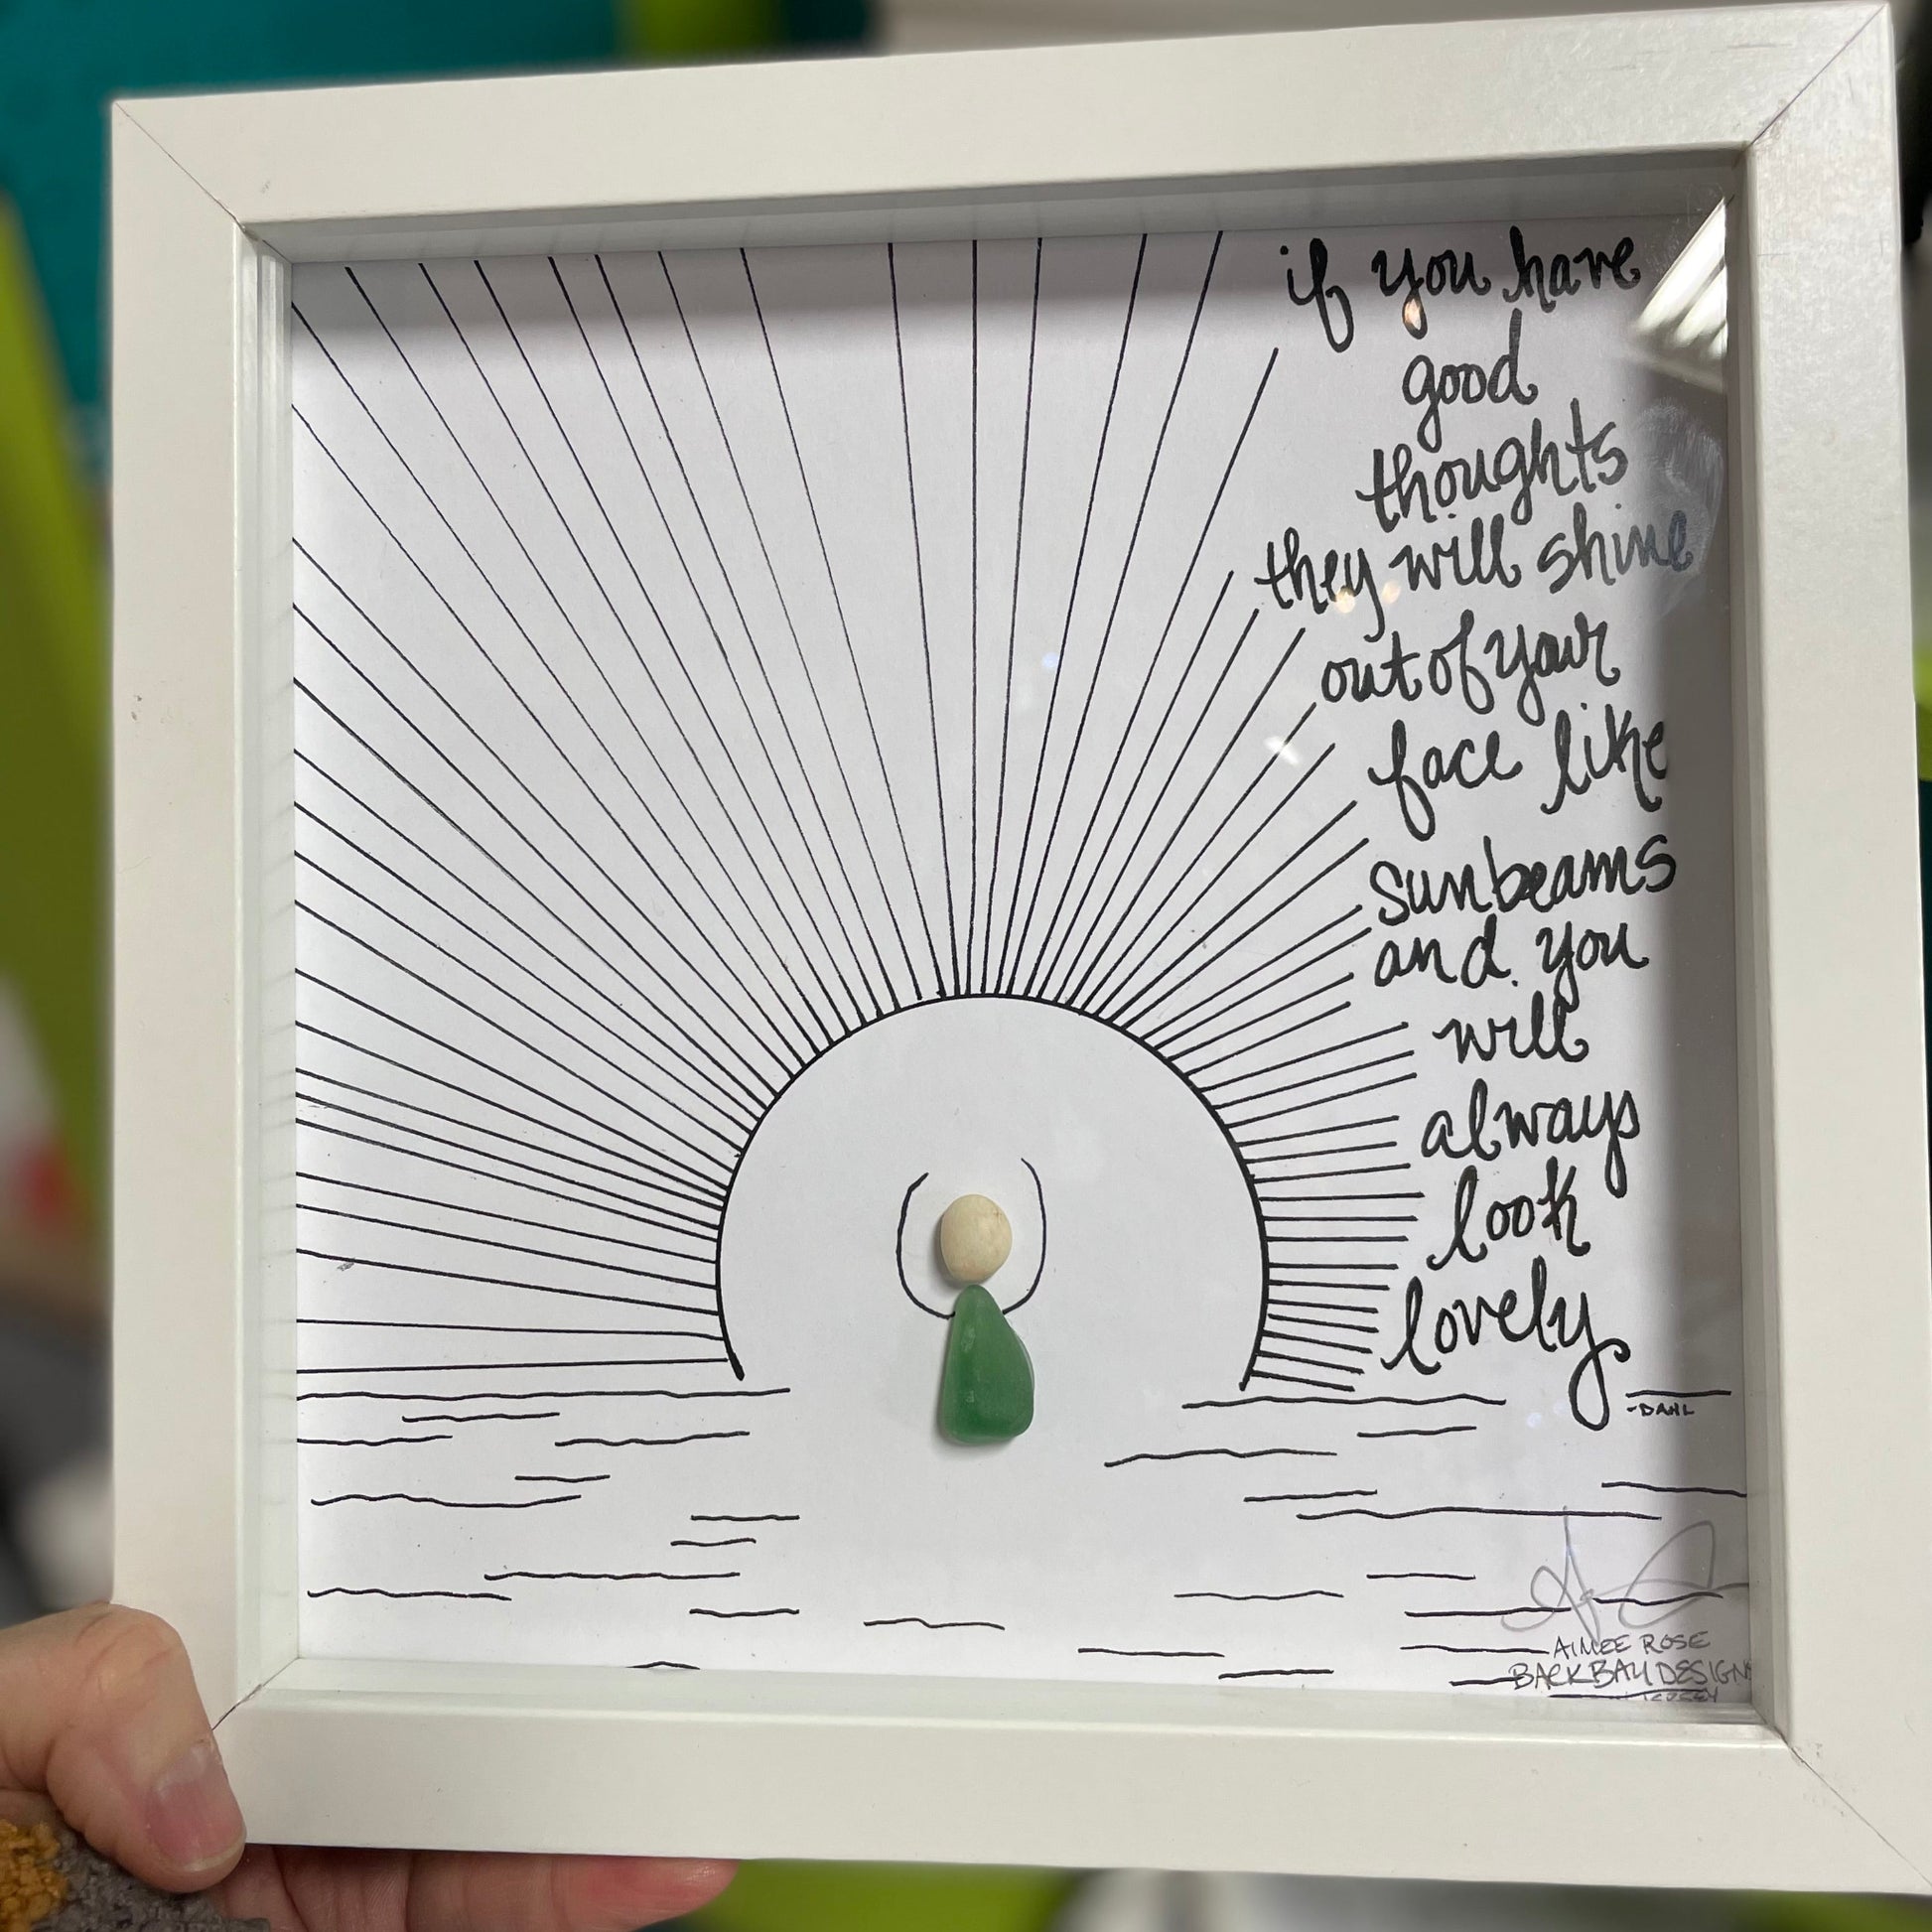 if you have
good
thoughts
they will shine
out of your
face like
sunbeams
and you
will
always
look
lovely
-DAHL
AIMEE ROSE
BACK BAY DESIGN